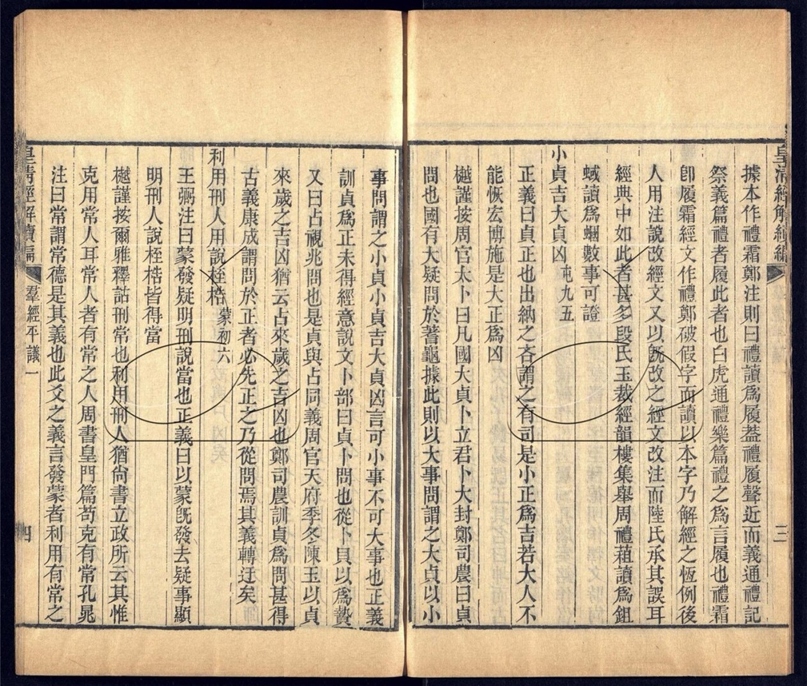 據本作禮霜鄭注則曰禮讀爲履蓋禮履聲近而義通禮記
祭義篇禮者履此者也白虎通禮樂篇禮之爲言履也禮霜
卽履霜經文作禮鄭破假字而讀以本字乃解經之恆例後
人用注說改經文又以旣改之經文改注而陸氏承其誤耳
經典中如此者甚多段氏玉裁經韻樓集舉周禮蒩讀爲鉏
蜮讀爲蟈數事可證
小貞吉大貞凶 屯九五
正義曰貞正也出納之吝謂之有司是小正爲吉若大人不
能恢宏博施是大正爲凶
樾謹按周官大卜曰凡國大貞卜立君卜大封鄭司農曰貞
問也國有大疑問於蓍龜據此則以大事問謂之大貞以小
三
事問謂之小貞小貞吉大貞凶言可小事不可大事也正義
訓貞爲正未得經意說文卜部曰貞卜問也從卜貝以爲贄
又曰占視兆問也是貞與占同義周官天府季冬陳玉以貞
來歲之吉凶猶云占來歲之吉凶也鄭司農訓貞爲問甚得
古義康成謂問於正者必先正之乃從問焉其義轉迂矣
利用刑人用說桎梏 蒙初六
王弼注曰蒙發疑明刑說當也正義曰以蒙旣發去疑事顯
明刑人說桎梏皆得當
樾謹按爾雅釋詁刑常也利用刑人猶尙書立政所云其惟
克用常人耳常人者有常之人周書皇門篇苟克有常孔晁
注曰常謂常德是其義也此爻之義言發蒙者利用有常之
皇淸經解續編 羣經平議一 四